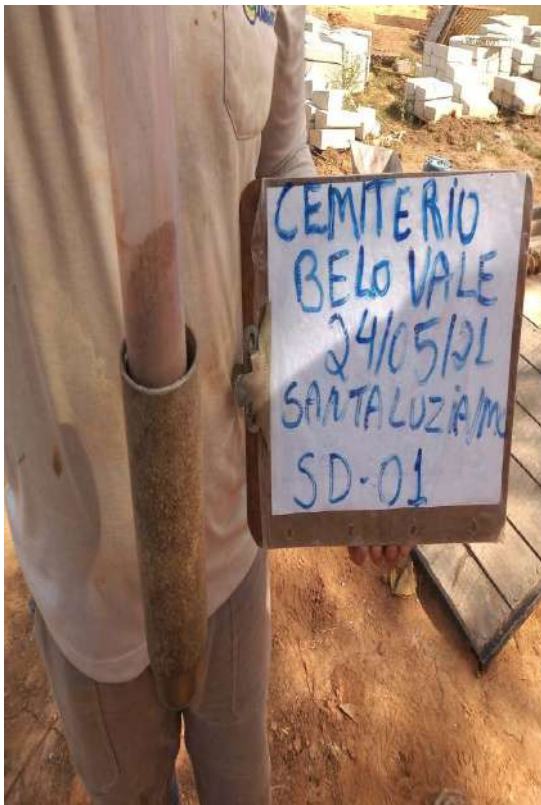 CEMITERIO
BELO VALE
24/05/21
SANTA LUZIA/MG
SD-01